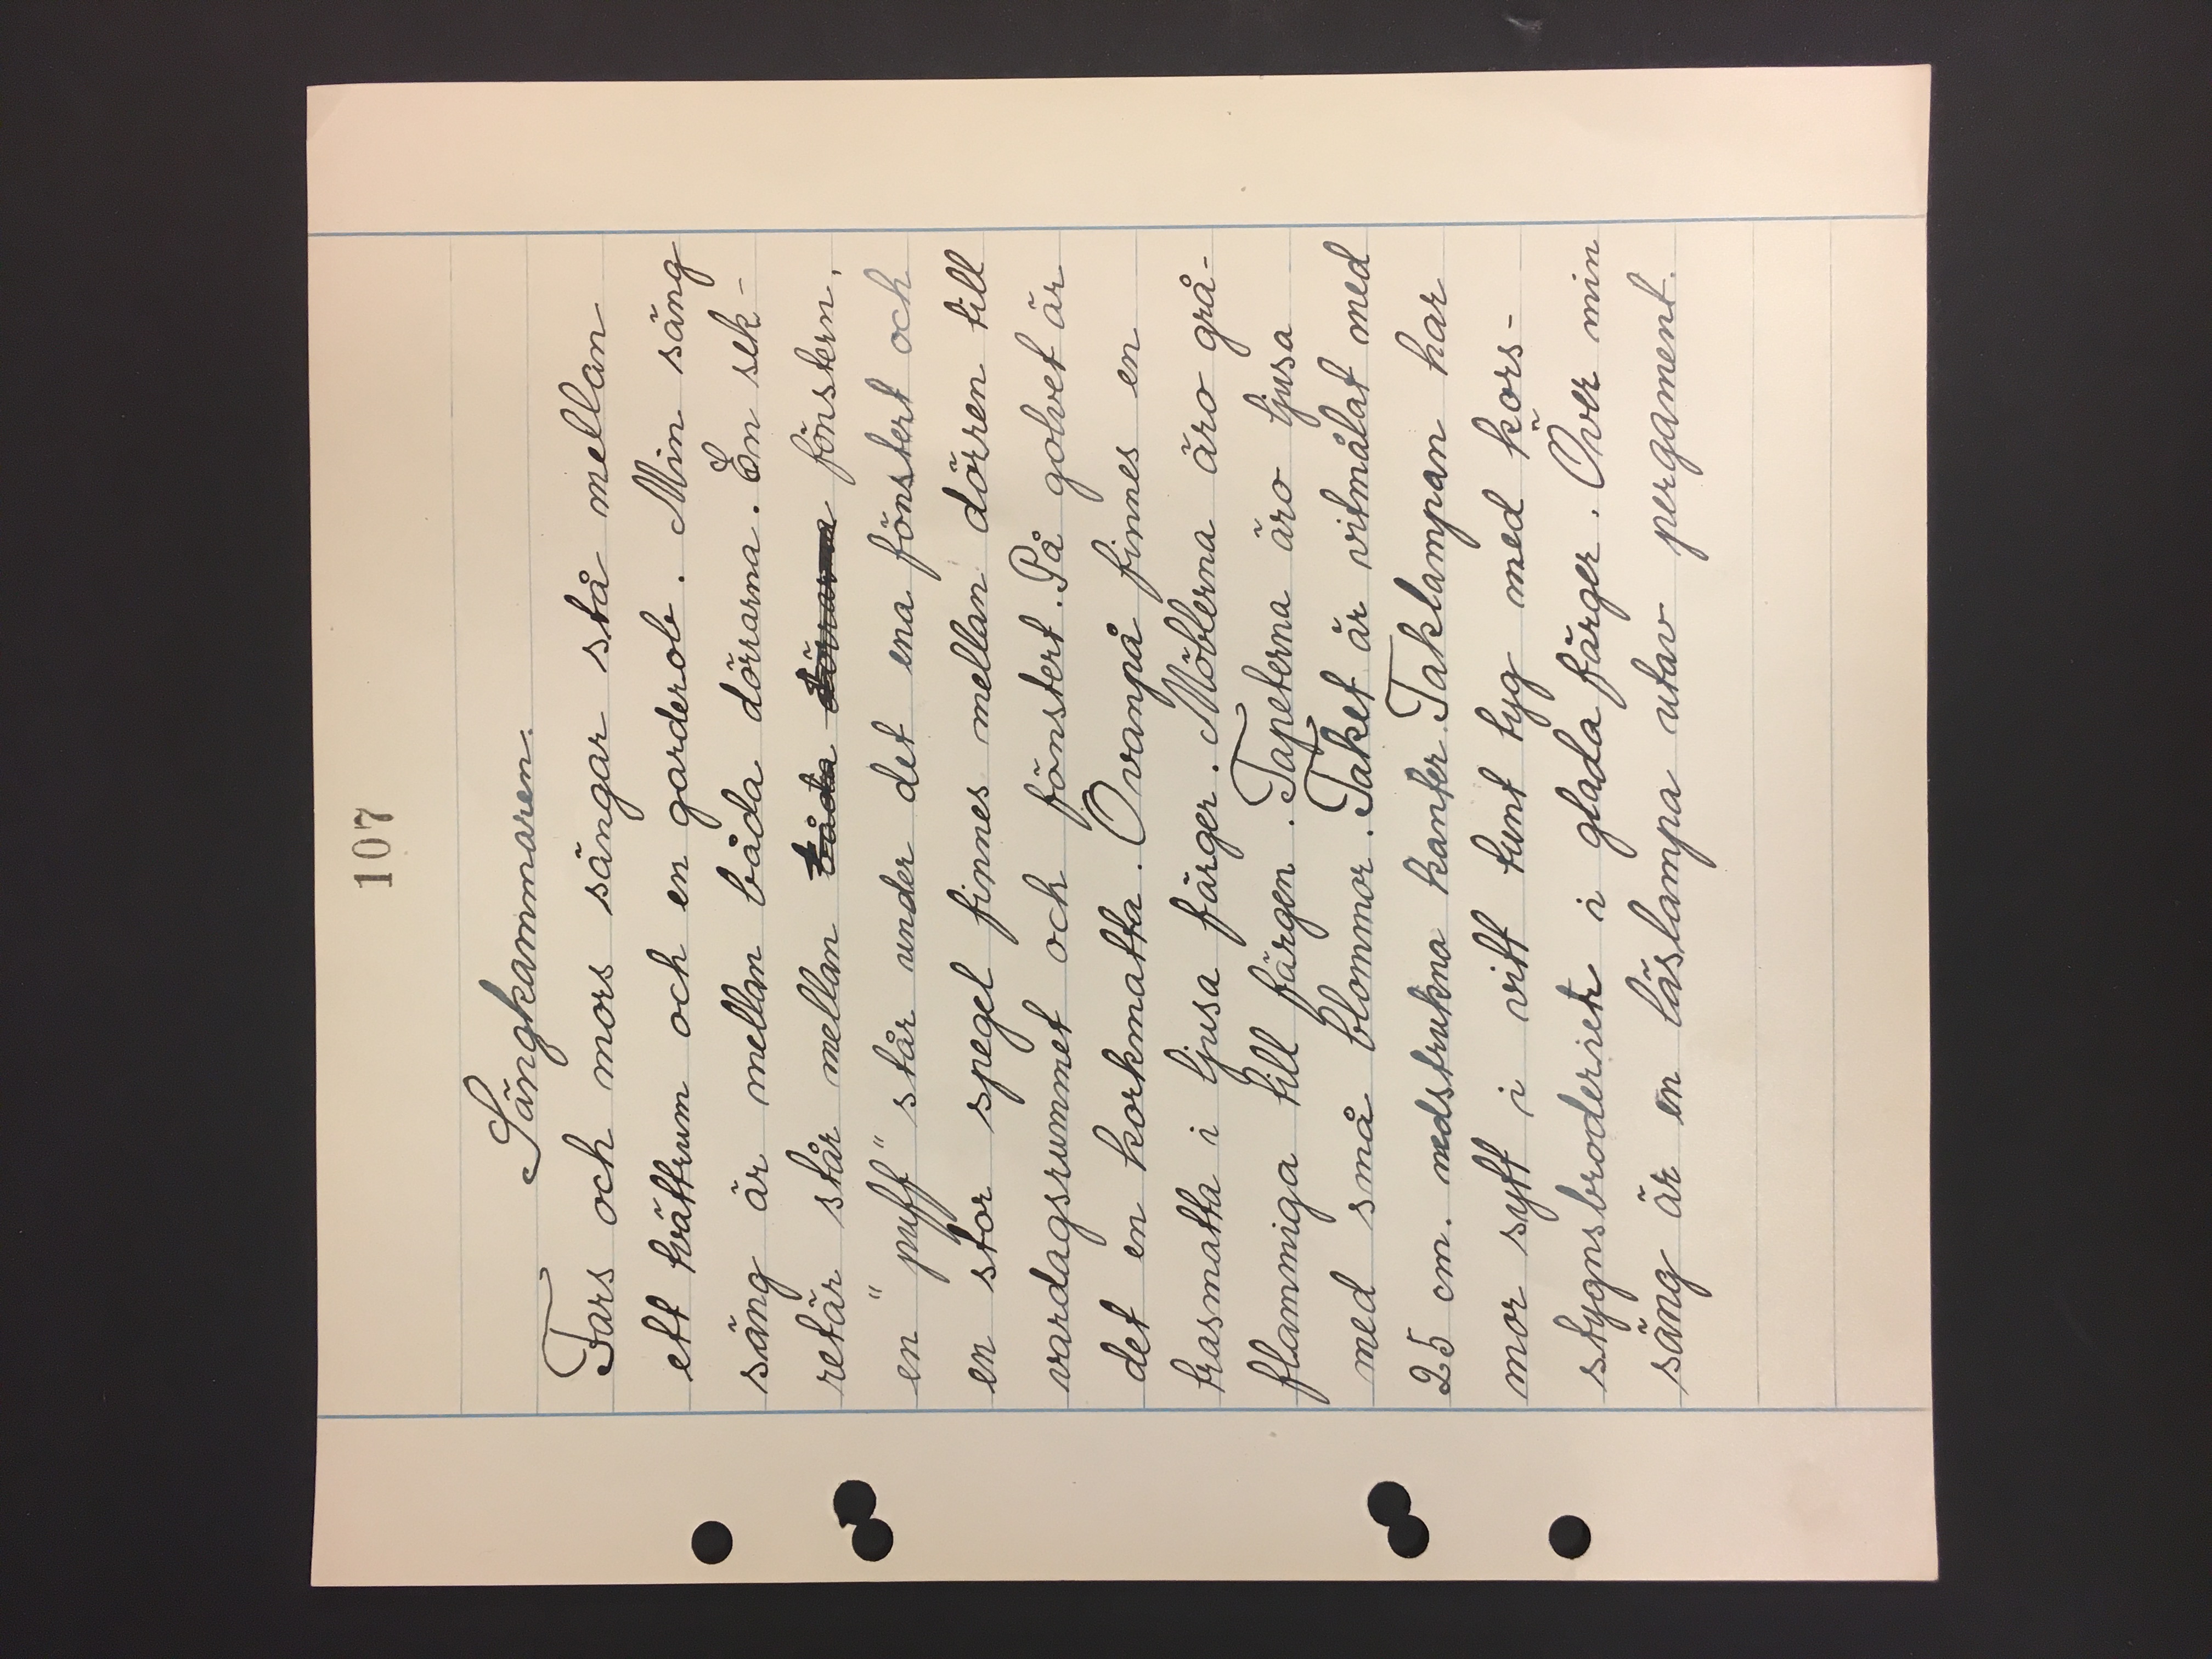 107
Sängkammaren.
Fars och mors sängar stå mellan
ett tvättrum och en garderob. Min säng
säng är mellan båda dörrarna. En sek-
retär står mellan båda dörrarna fönstern,
en "puff" står under det ena fönstert och
en stor spegel finnes mellan dörren till
vardagsrummet och fönstert. På golvet är
det en korkmatta. Ovanpå finnes en
trasmatta i ljusa färger. Möblerna äro grå-
flammiga till färgen. Tapeterna äro ljusa
med små blommor. Taket är vitmålat med
25 cm. nedstrukna kanter. Taklampan har
mor sytt i vitt tunt tyg med kors-
stygnsbroderiet i glada färger. Över min
säng är en läslampa utav pergament.